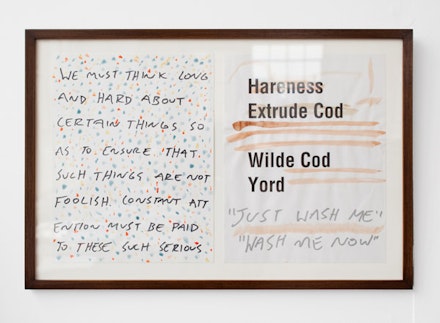 WE MUST THINK LONG
AND HARD ABOUT
CERTAIN THINGS SO
AS TO ENSURE THAT
SUCH THINGS ARE NOT
FOOLISH. CONSTANT ATT
ENTION MUST BE PAID
TO THESE SUCH SERIOUS
Hareness
Extrude Cod
Wilde Cod
Yord
"JUST WASH ME"
"WASH ME NOW"